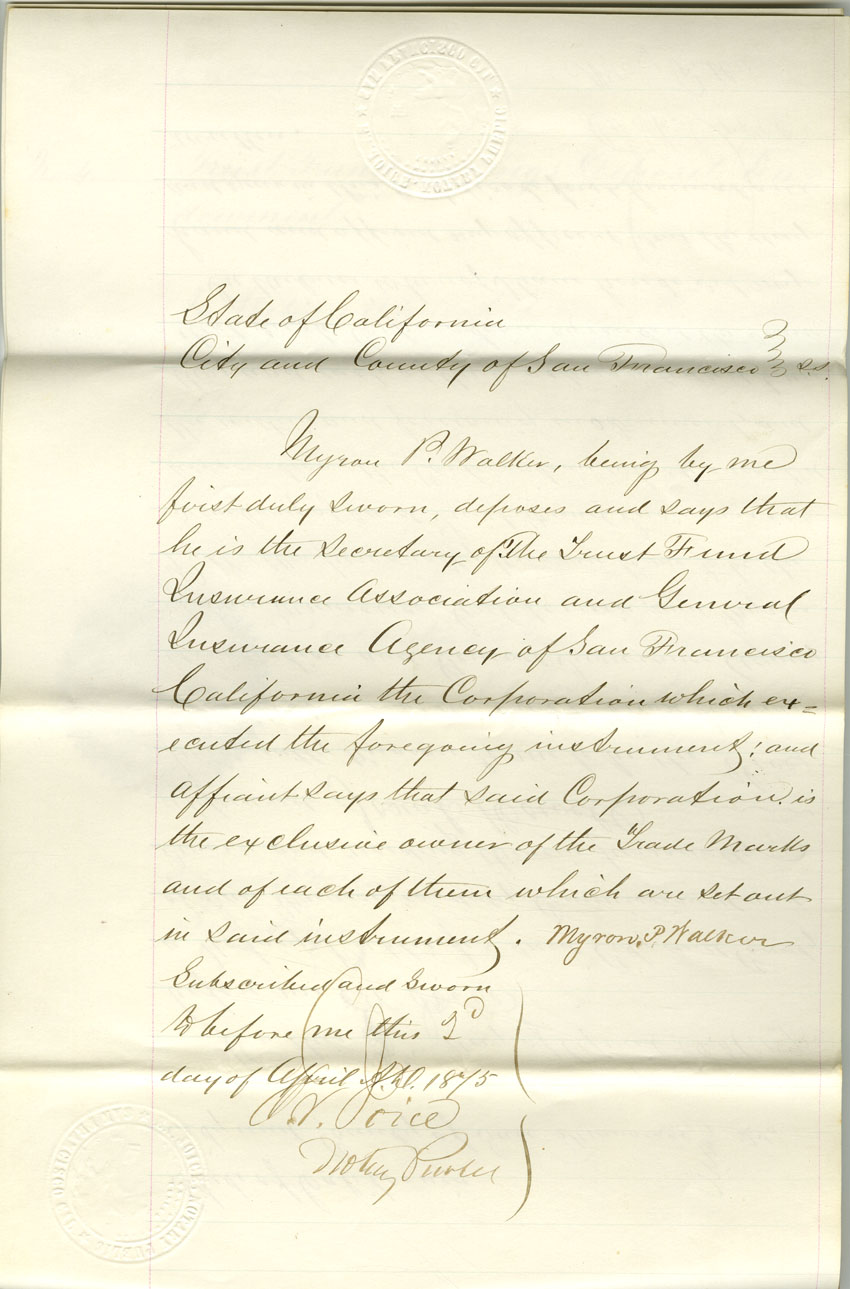 State of California
City and County of San Francisco } ss.
Myron P. Walker, being by me
first duly sworn, deposes and says that
he is the secretary of "The Trust Fund
Insurance Association and General
Insurance Agency of San Francisco
California the Corporation which ex=
ecuted the foregoing instrument; and
affiant says that said Corporation is
the exclusive owner of the Trade Marks
and of each of them which are set out
in said instrument. Myron P. Walker
Subscribed and Sworn
to before me this 2d
day of April A.D. 1875
Notary Public